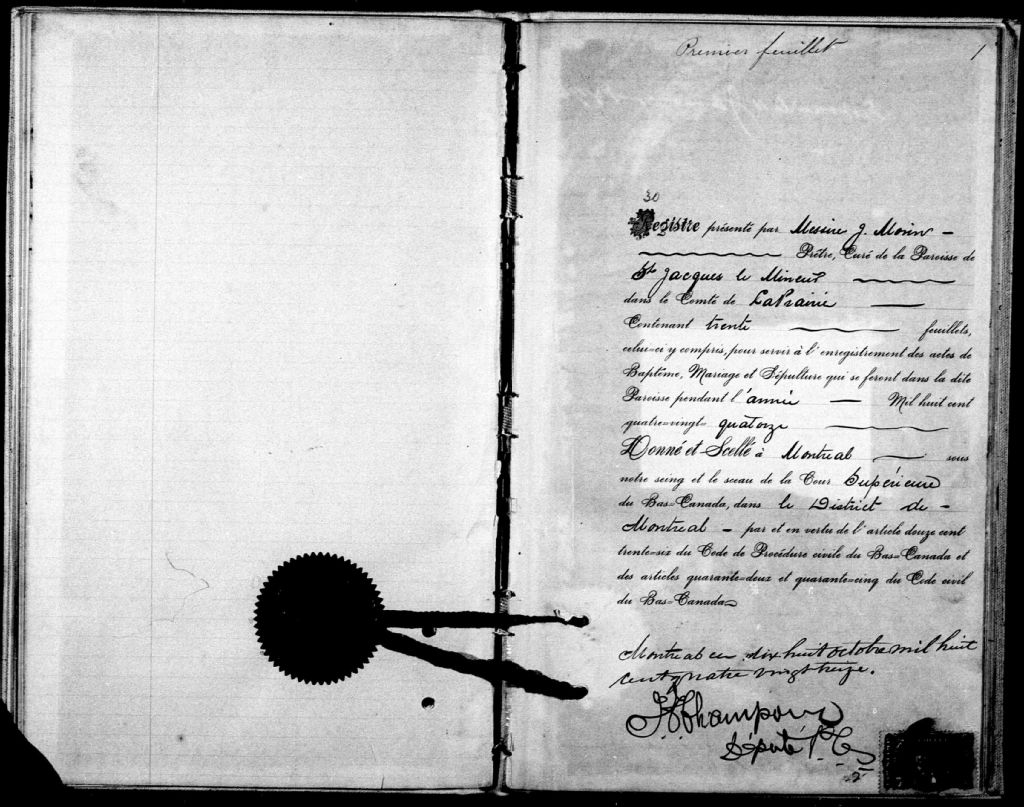 Premier feuillet
1
30
Registre présenté par Messire J. Morin
Prêtre, Curé de la Paroisse de
St Jacques le Mineur
dans le Comté de LaPrairie
Contenant trente feuillets,
celui-ci y compris, pour servir à l'enregistrement des actes de
Baptême, Mariage et Sépulture qui se feront dans la dite
Paroisse pendant l'année Mil huit cent
quatre-vingt-quatorze
Donné et Scellé à Montreal sous
notre seing et le sceau de la Cour Supérieure
du Bas-Canada, dans le District de
Montreal par et en vertu de l'article douze cent
trente-six du Code de Procédure civile du Bas-Canada et
des articles quarante-deux et quarante-cinq du Code civil
du Bas-Canada
Montreal ce dix huit octobre mil huit
cent quatre vingt treize.
Député P.C.S